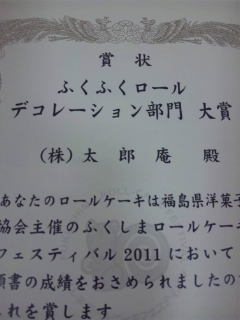 賞状
ふくふくロール
デコレーション部門 大賞
(株)太郎庵 殿
あなたのロールケーキは福島県洋菓子
協会主催のふくしまロールケーキ
フェスティバル2011において
頭書の成績をおさめられましたので
これを賞します